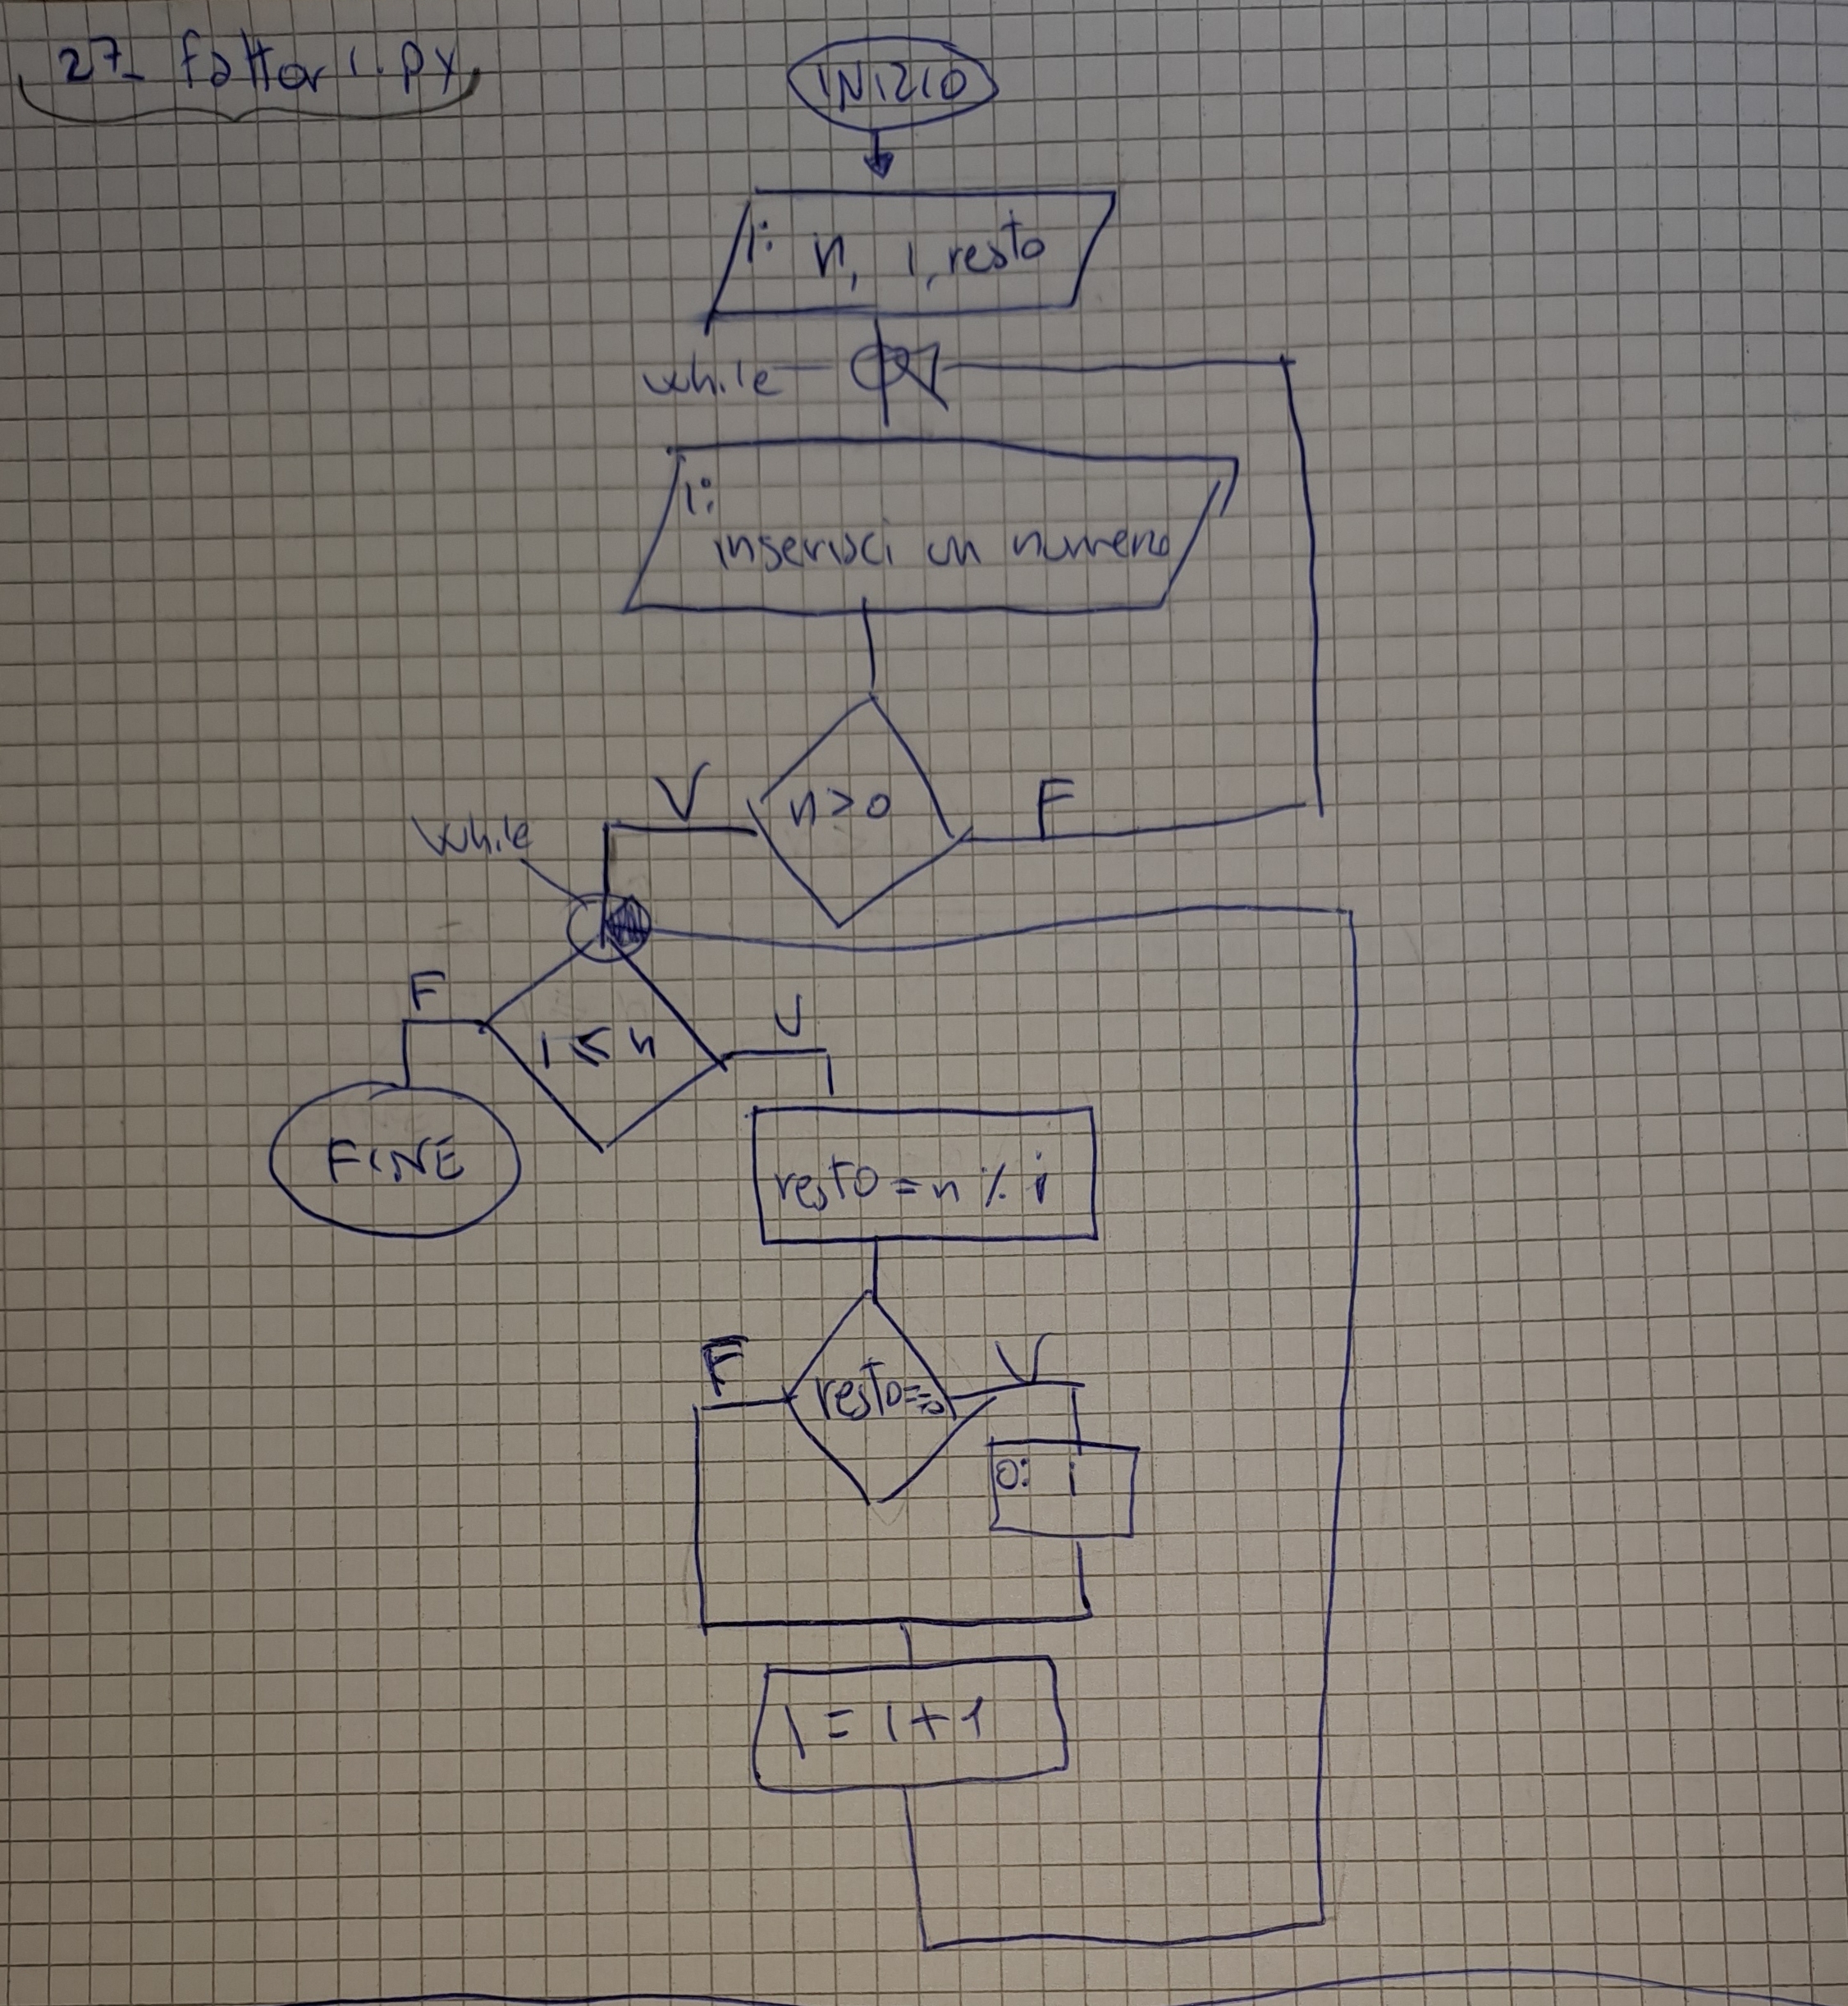 27_fattori.py
INIZIO
I: n, i, resto
while
I:
inserisci un numero
n>0
V
F
while
F
i ≤ n
V
FINE
resto = n % i
F
resto==0
V
O: i
i = i + 1